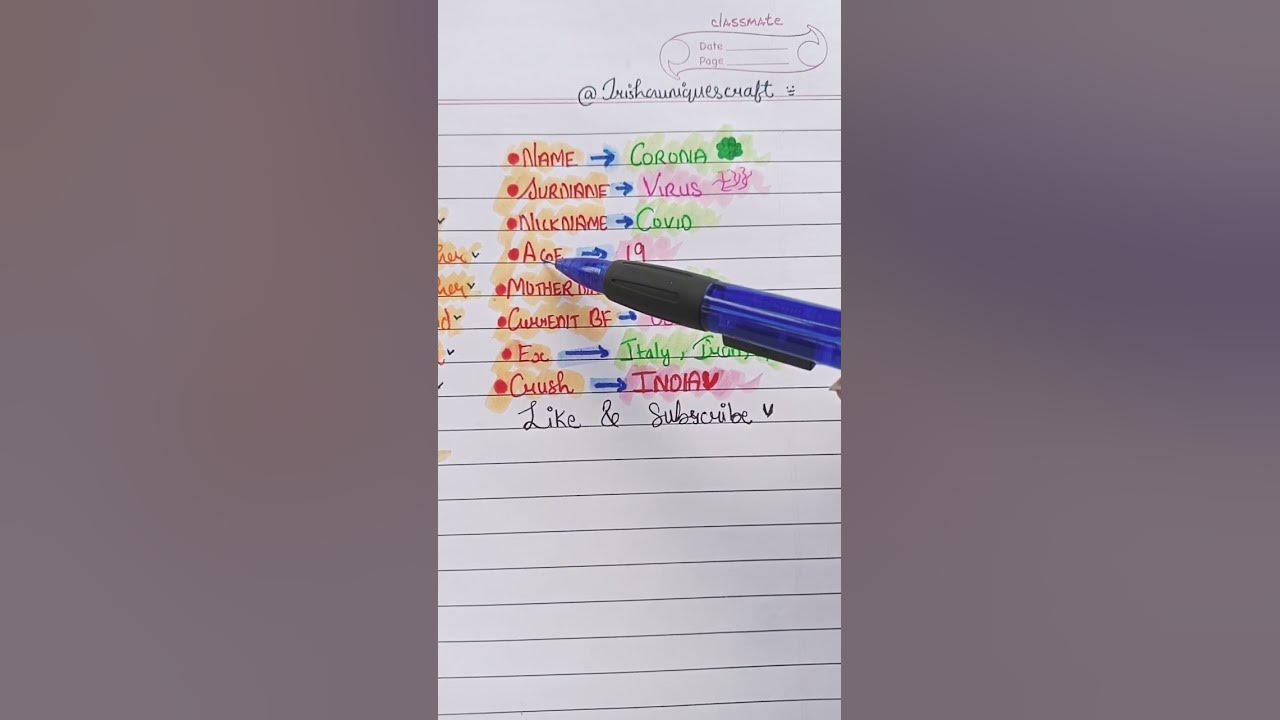 classmate
Date
Page
@Trishauniquescraft
• NAME → CORONA
• SURNAME → VIRUS
• NICKNAME → COVID
• AGE → 19
• MOTHER
• CURRENT BF →
• Ex → Italy,
• Crush → INDIA♥
Like & Subscribe